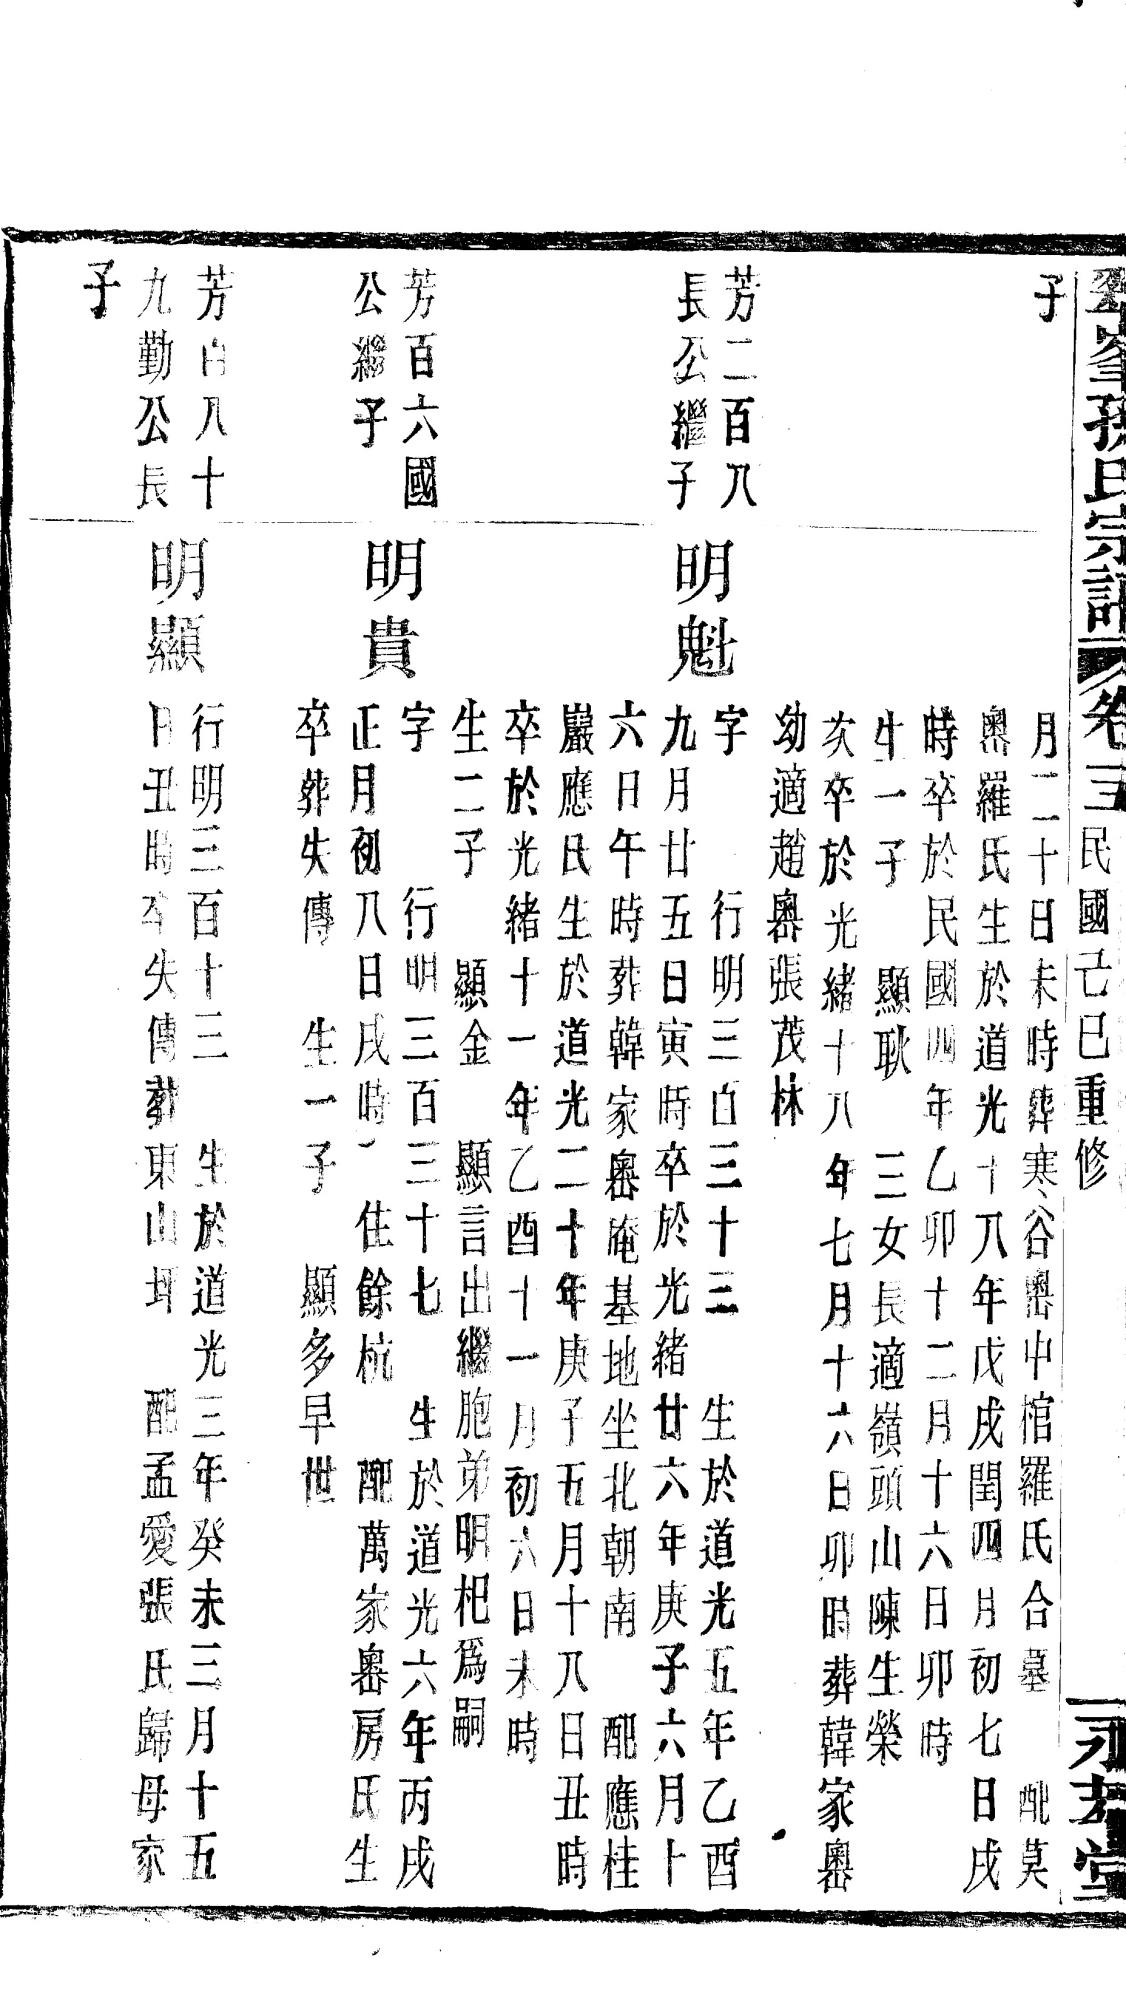 峯孫氏宗譜 卷三 民國己巳重修 永
堂
子
月二十日未時葬寒谷嶴中棺羅氏合墓 配莫
嶴羅氏生於道光十八年戊戌閏四月初七日戌
時卒於民國四年乙卯十二月十六日卯時
生一子 顯耿 三女長適嶺頭山陳生榮
次卒於光緒十八年七月十六日卯時葬韓家嶴
幼適趙嶴張茂林
芳二百八
長公繼子
明魁
字 行明三百三十三 生於道光五年乙酉
九月廿五日寅時卒於光緒廿六年庚子六月十
六日午時葬韓家嶴庵基地坐北朝南 配應桂
巖應氏生於道光二十年庚子五月十八日丑時
卒於光緒十一年乙酉十一月初六日未時
生二子 顯金 顯言出繼胞弟明杷爲嗣
芳百六國
公繼子
明貴
字 行明三百三十七 生於道光六年丙戌
正月初八日戌時 住餘杭 配萬家嶴房氏生
卒葬失傳 生一子 顯多早世
芳百八十
九勤公長
子
明顯
行明三百十三 生於道光三年癸未三月十五
日丑時卒失傳葬東山坪 配孟愛張氏歸母家